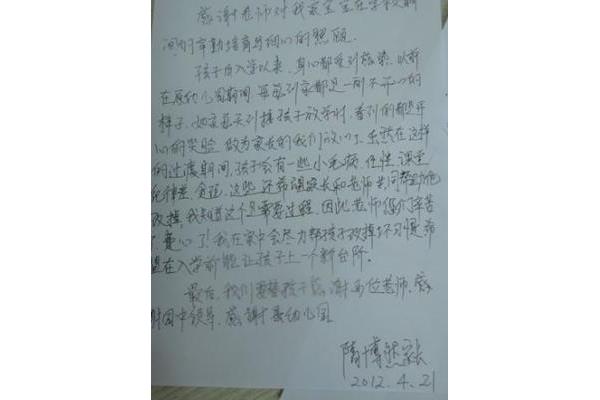 感谢老师对我家宝宝在学校期
间的辛勤培育与细心的照顾
孩子自入学以来,身心都受到感染,以前
在原幼儿园期间,每每到家都是一副不开心的
样子,如今每天到接孩子放学时,看到的都是开
心的笑脸,做为家长的我们放心了,虽然在这样
的过渡期间,孩子会有一些小毛病,任性,课堂
纪律差,贪玩,这些还希望家长和老师共同帮助他
改掉,我知道这个是需要过程,因此老师您们辛苦
费心了!我在家中会尽力帮孩子改掉坏习惯,希
望在入学前能让孩子上一个新台阶。
最后,我们要替孩子感谢各位老师,感
谢园中领导,感谢幼儿园
隋博然家长
2012.4.21